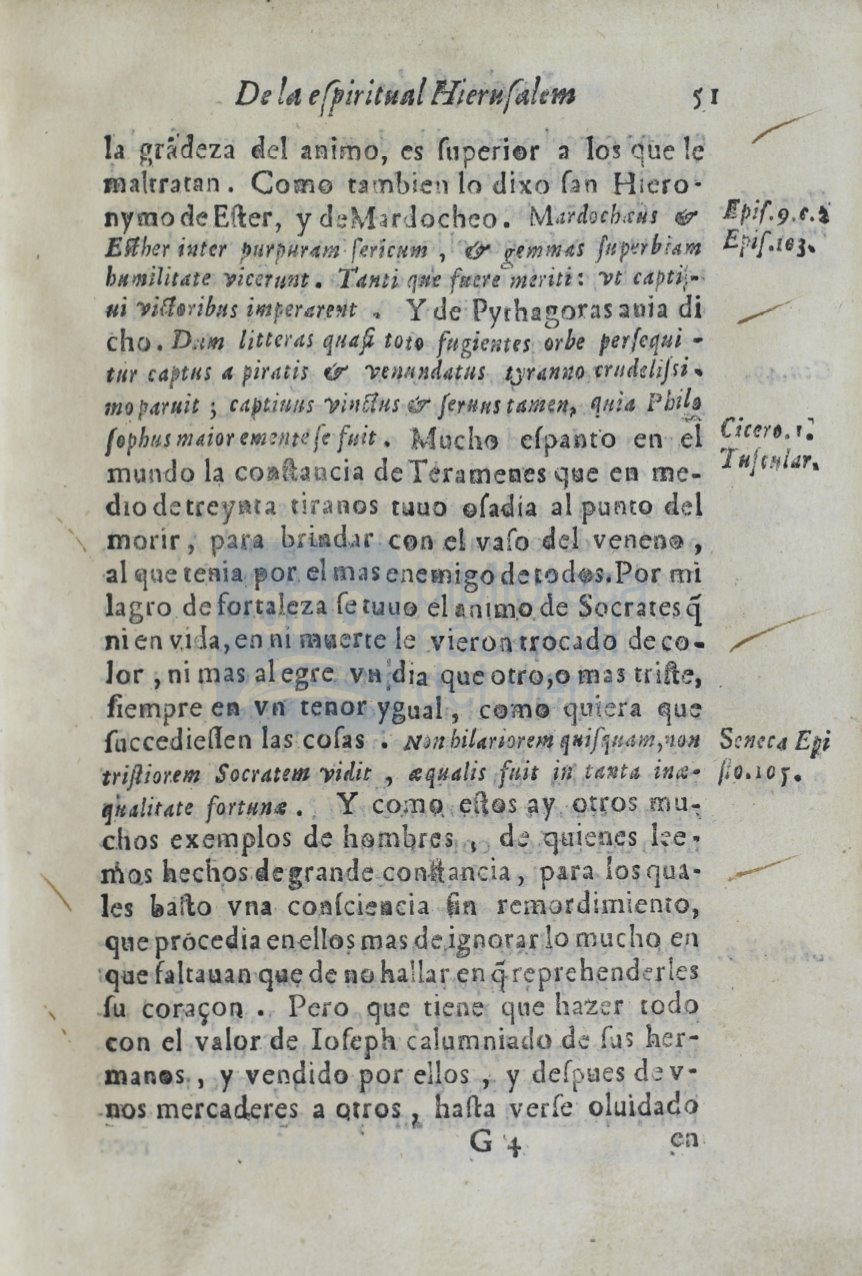 De la eſpiritual Hieruſalem 51
la grãdeza del animo, es ſuperior a los que le
maltratan. Como tambien lo dixo ſan Hiero-
nymo de Eſter, y de Mardocheo. Mardochæus &
Eſther inter purpuram ſericum, & gemmas ſuperbiam
humilitate vicerunt. Tanti que fuere meriti: vt capti-
ui victoribus imperarent. Y de Pythagoras auia di
cho. Dum litteras quaſi toto fugientes orbe perſequi-
tur captus a piratis & venundatus tyranno crudeliſsi-
mo paruit; captiuus vinctus & ſeruus tamen, quia Philo
ſophus maior emente ſe fuit. Mucho eſpanto en el
mundo la conſtancia de Teramenes que en me-
dio de treynta tiranos tuuo oſadia al punto del
morir, para brindar con el vaſo del veneno,
al que tenia por el mas enemigo de todos. Por mi
lagro de fortaleza ſe tuuo el animo de Socrates q̃
ni en vida, en ni muerte le vieron trocado de co-
lor, ni mas alegre vn dia que otro, o mas triſte,
ſiempre en vn tenor ygual, como quiera que
ſuccedieſſen las coſas. Non hilariorem quiſquam, non
triſtiorem Socratem vidit, æqualis fuit in tanta inæ-
qualitate fortunæ. Y como eſtos ay otros mu-
chos exemplos de hombres, de quienes lee-
mos hechos de grande conſtancia, para los qua-
les baſto vna conſciencia ſin remordimiento,
que procedia en ellos mas de ignorar lo mucho en
que faltauan que de no hallar en q̃ reprehenderles
ſu coraçon. Pero que tiene que hazer todo
con el valor de Ioſeph calumniado de ſus her-
manos, y vendido por ellos, y deſpues de v-
nos mercaderes a otros, haſta verſe oluidado
G 4 en
Epiſ. 9. e. 2
Epiſ. 103.
Cicero. 1.
Tuſcular.
Seneca Epi
ſto. 105.